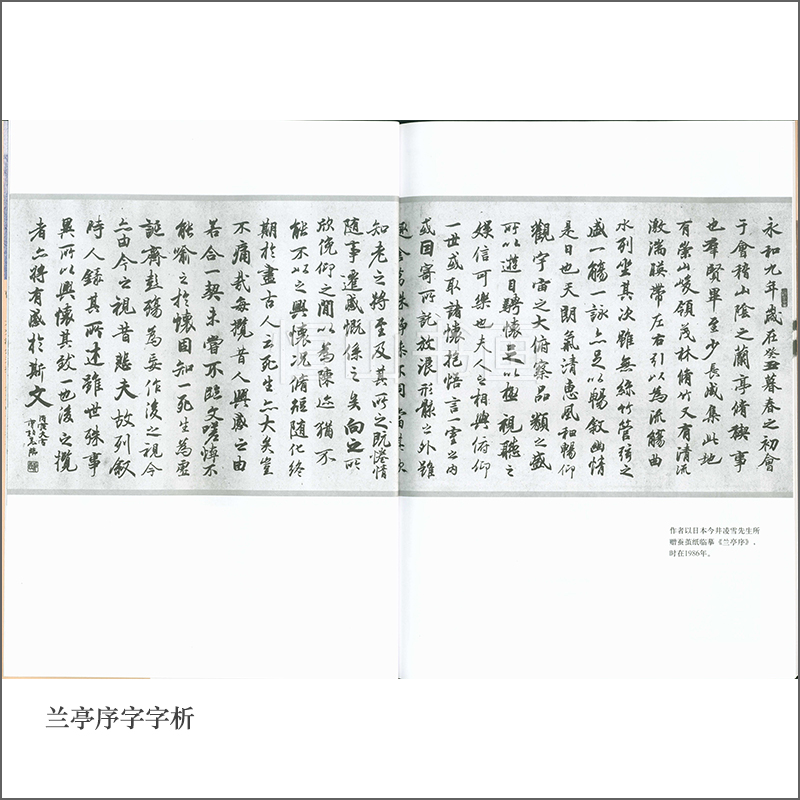 永和九年歲在癸丑暮春之初會
于會稽山陰之蘭亭脩稧事
也羣賢畢至少長咸集此地
有崇山峻領茂林脩竹又有清流
激湍暎帶左右引以為流觴曲
水列坐其次雖無絲竹管弦之
盛一觴一詠亦足以暢敘幽情
是日也天朗氣清惠風和暢仰
觀宇宙之大俯察品類之盛
所以遊目騁懷足以極視聽之
娛信可樂也夫人之相與俯仰
一世或取諸懷抱悟言一室之內
或因寄所託放浪形骸之外雖
不同當其
知老之將至及其所之既惓情
隨事遷感慨係之矣向之所
欣俛仰之間以為陳迹猶不
能不以之興懷況脩短隨化終
期於盡古人云死生亦大矣豈
不痛哉每攬昔人興感之由
若合一契未嘗不臨文嗟悼不
能喻之於懷固知一死生為虛
誕齊彭殤為妄作後之視今
亦由今之視昔悲夫故列敘
時人錄其所述雖世殊事
異所以興懷其致一也後之攬
者亦將有感於斯文
作者以日本今井凌雪先生所
赠蚕茧纸临摹《兰亭序》，
时在1986年。
兰亭序字字析